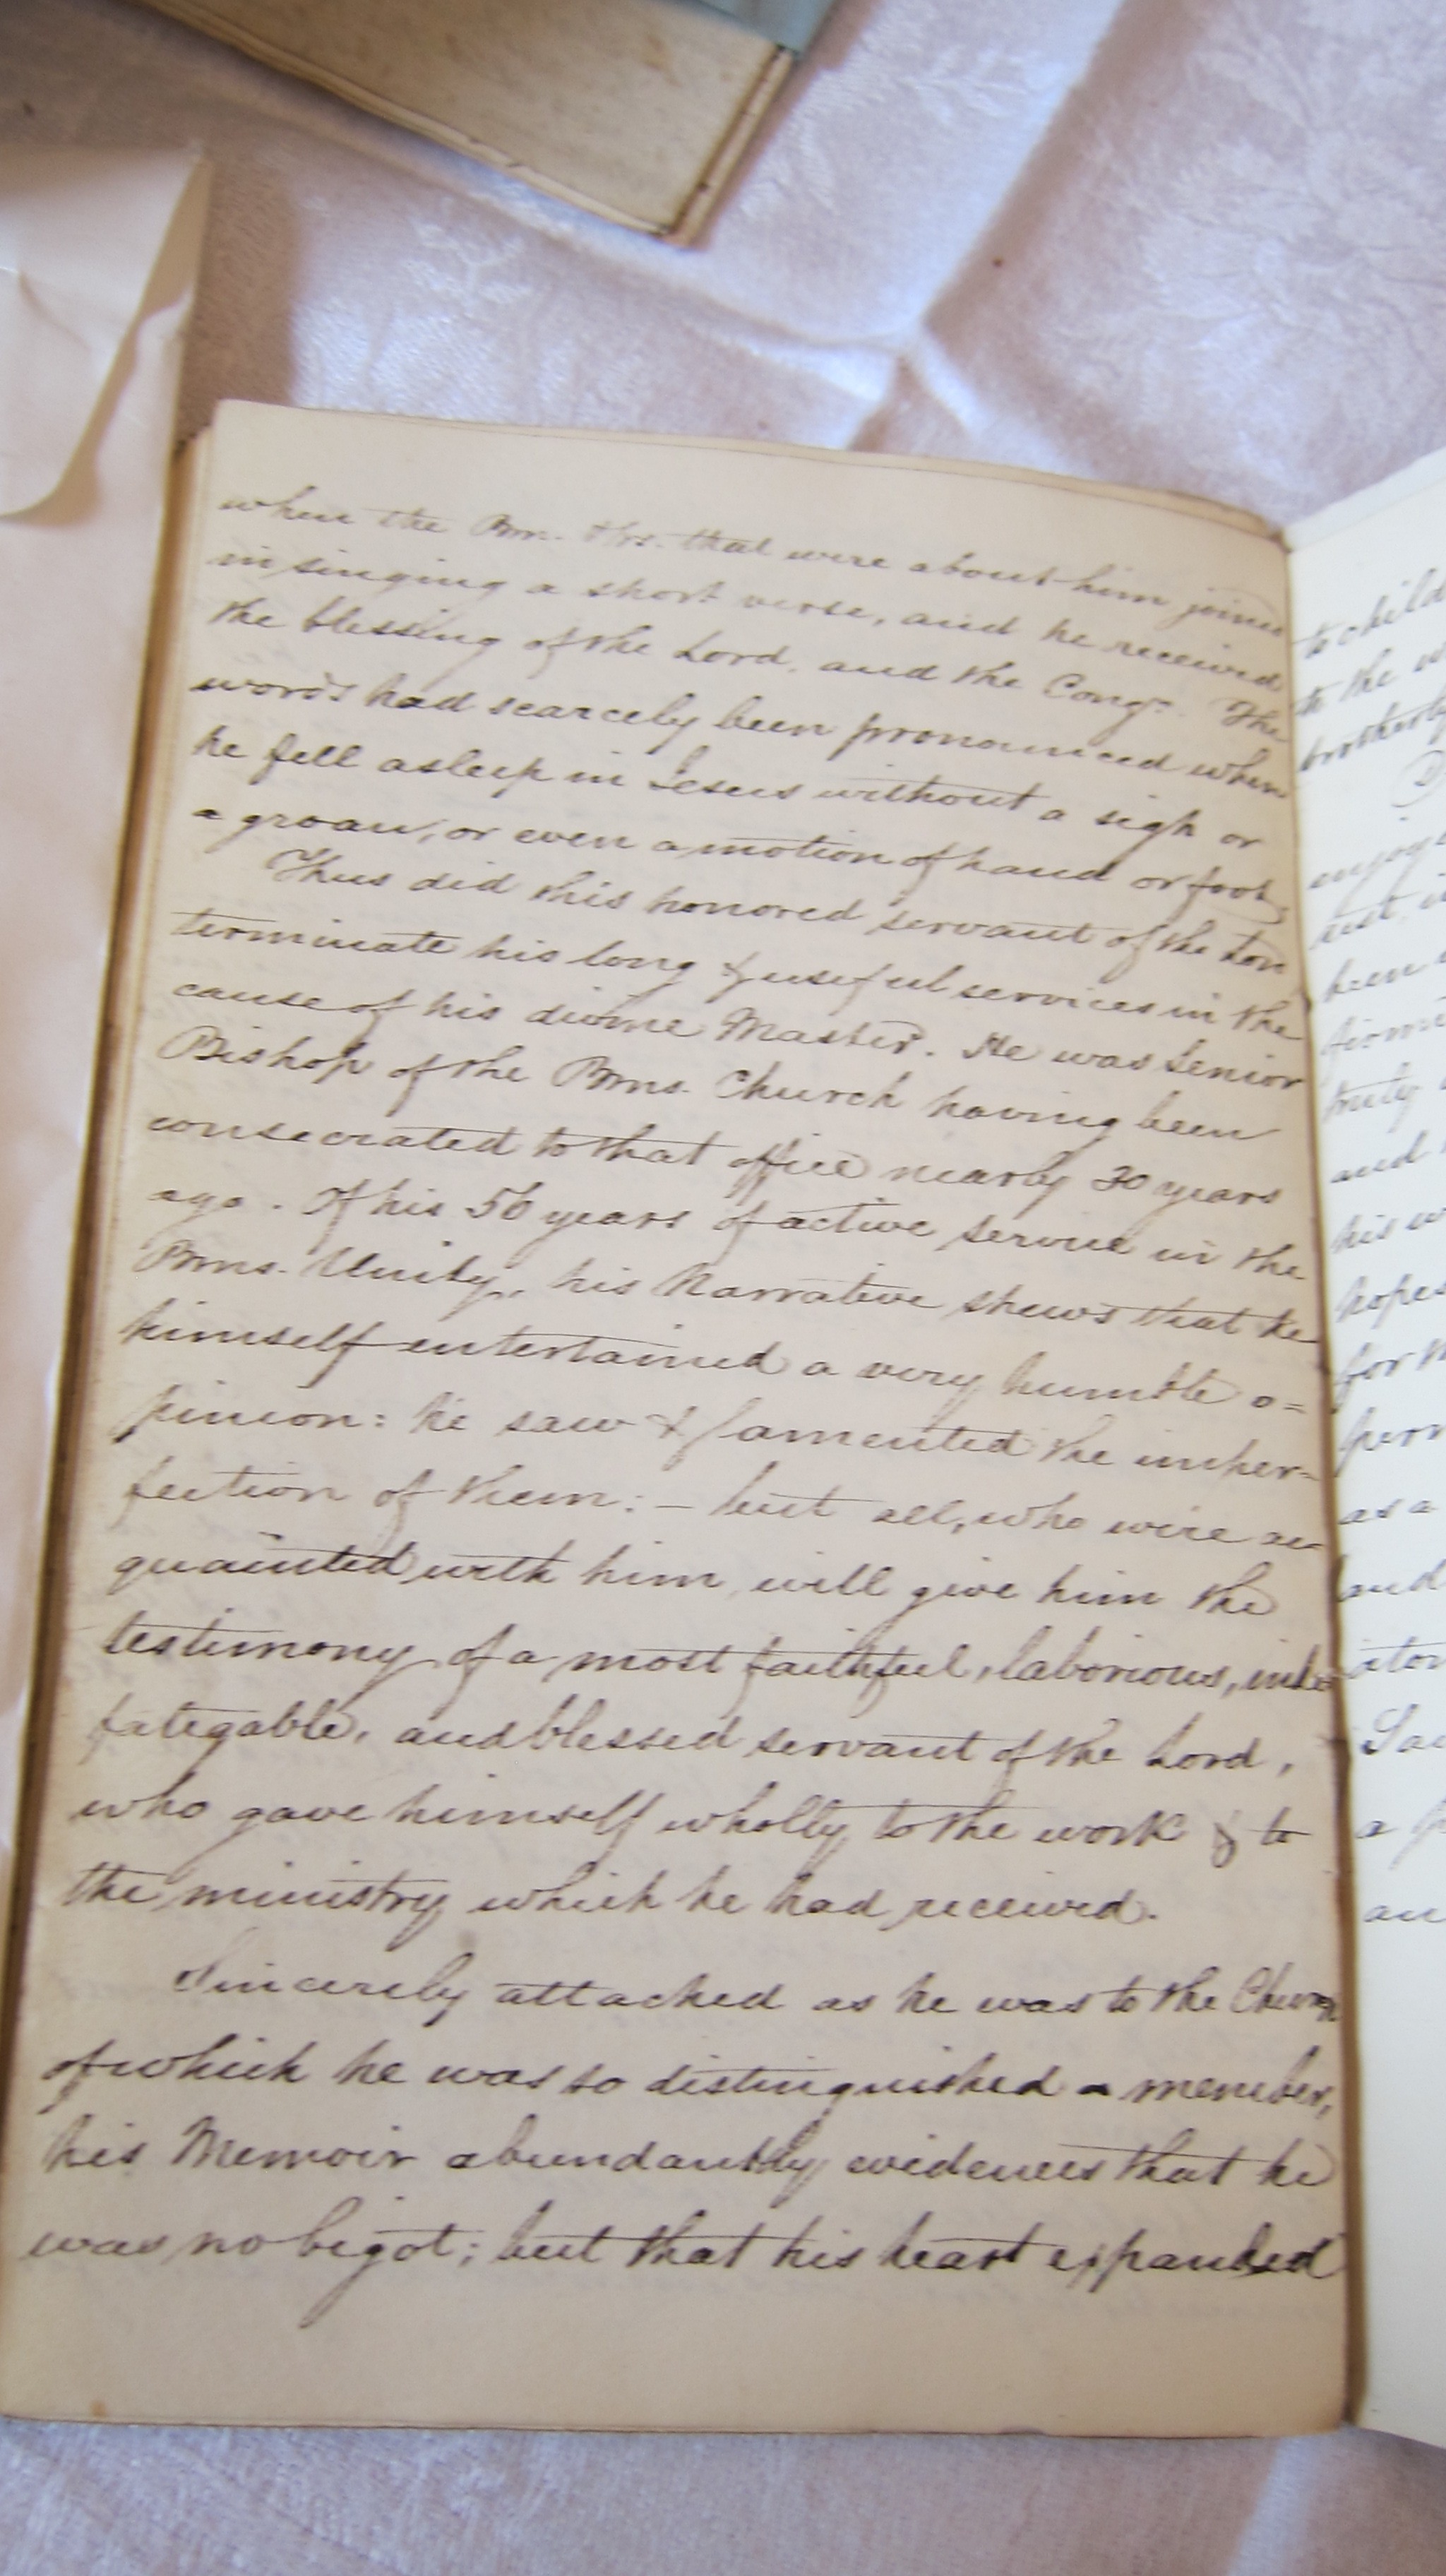 when the Brn. & Srs. that were about him joined
in singing a short verse, and he received
the blessing of the Lord, and the Congn. The
words had scarcely been pronounced when
he fell asleep in Jesus without a sigh or
a groan, or even a motion of hand or foot.
Thus did this honored servant of the Lord
terminate his long & useful services in the
cause of his divine Master. He was Senior
Bishop of the Brns. Church having been
consecrated to that office nearly 30 years
ago. Of his 56 years of active service in the
Brns. Unity, his Narrative shews that he
himself entertained a very humble o=
pinion: he saw & lamented the imper=
fection of them: – but all, who were ac=
quainted with him, will give him the
testimony of a most faithful, laborious, inde=
fategable, and blessed servant of the Lord,
who gave himself wholly to the work & to
the ministry which he had received.
Sincerely attached as he was to the Church
of which he was so distinguished a member,
his Memoir abundantly evidences that he
was no bigot; but that his heart expanded
to child
to the w
brotherly
enjoy
rest, i
been
firm
truly
and
his w
hopes
for
per
as a
and
aton
Sav
a
an